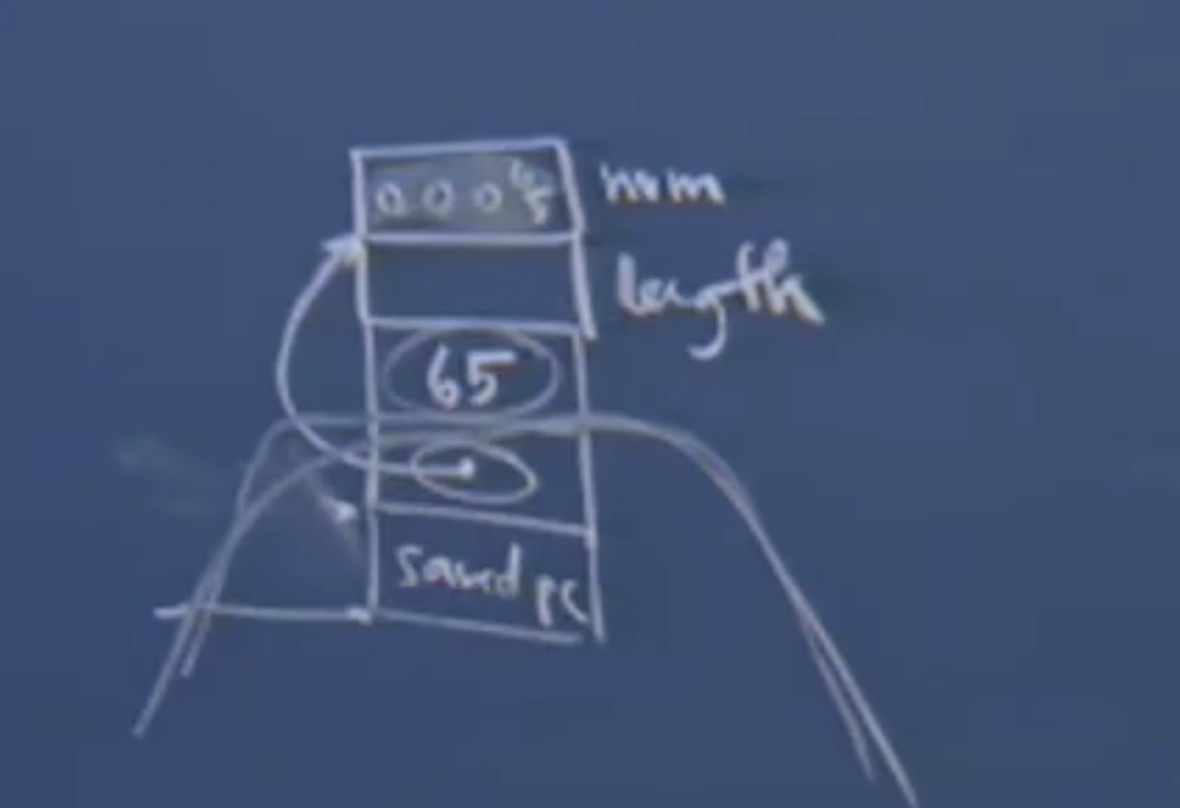 0 0 0 num
length
65
saved pc